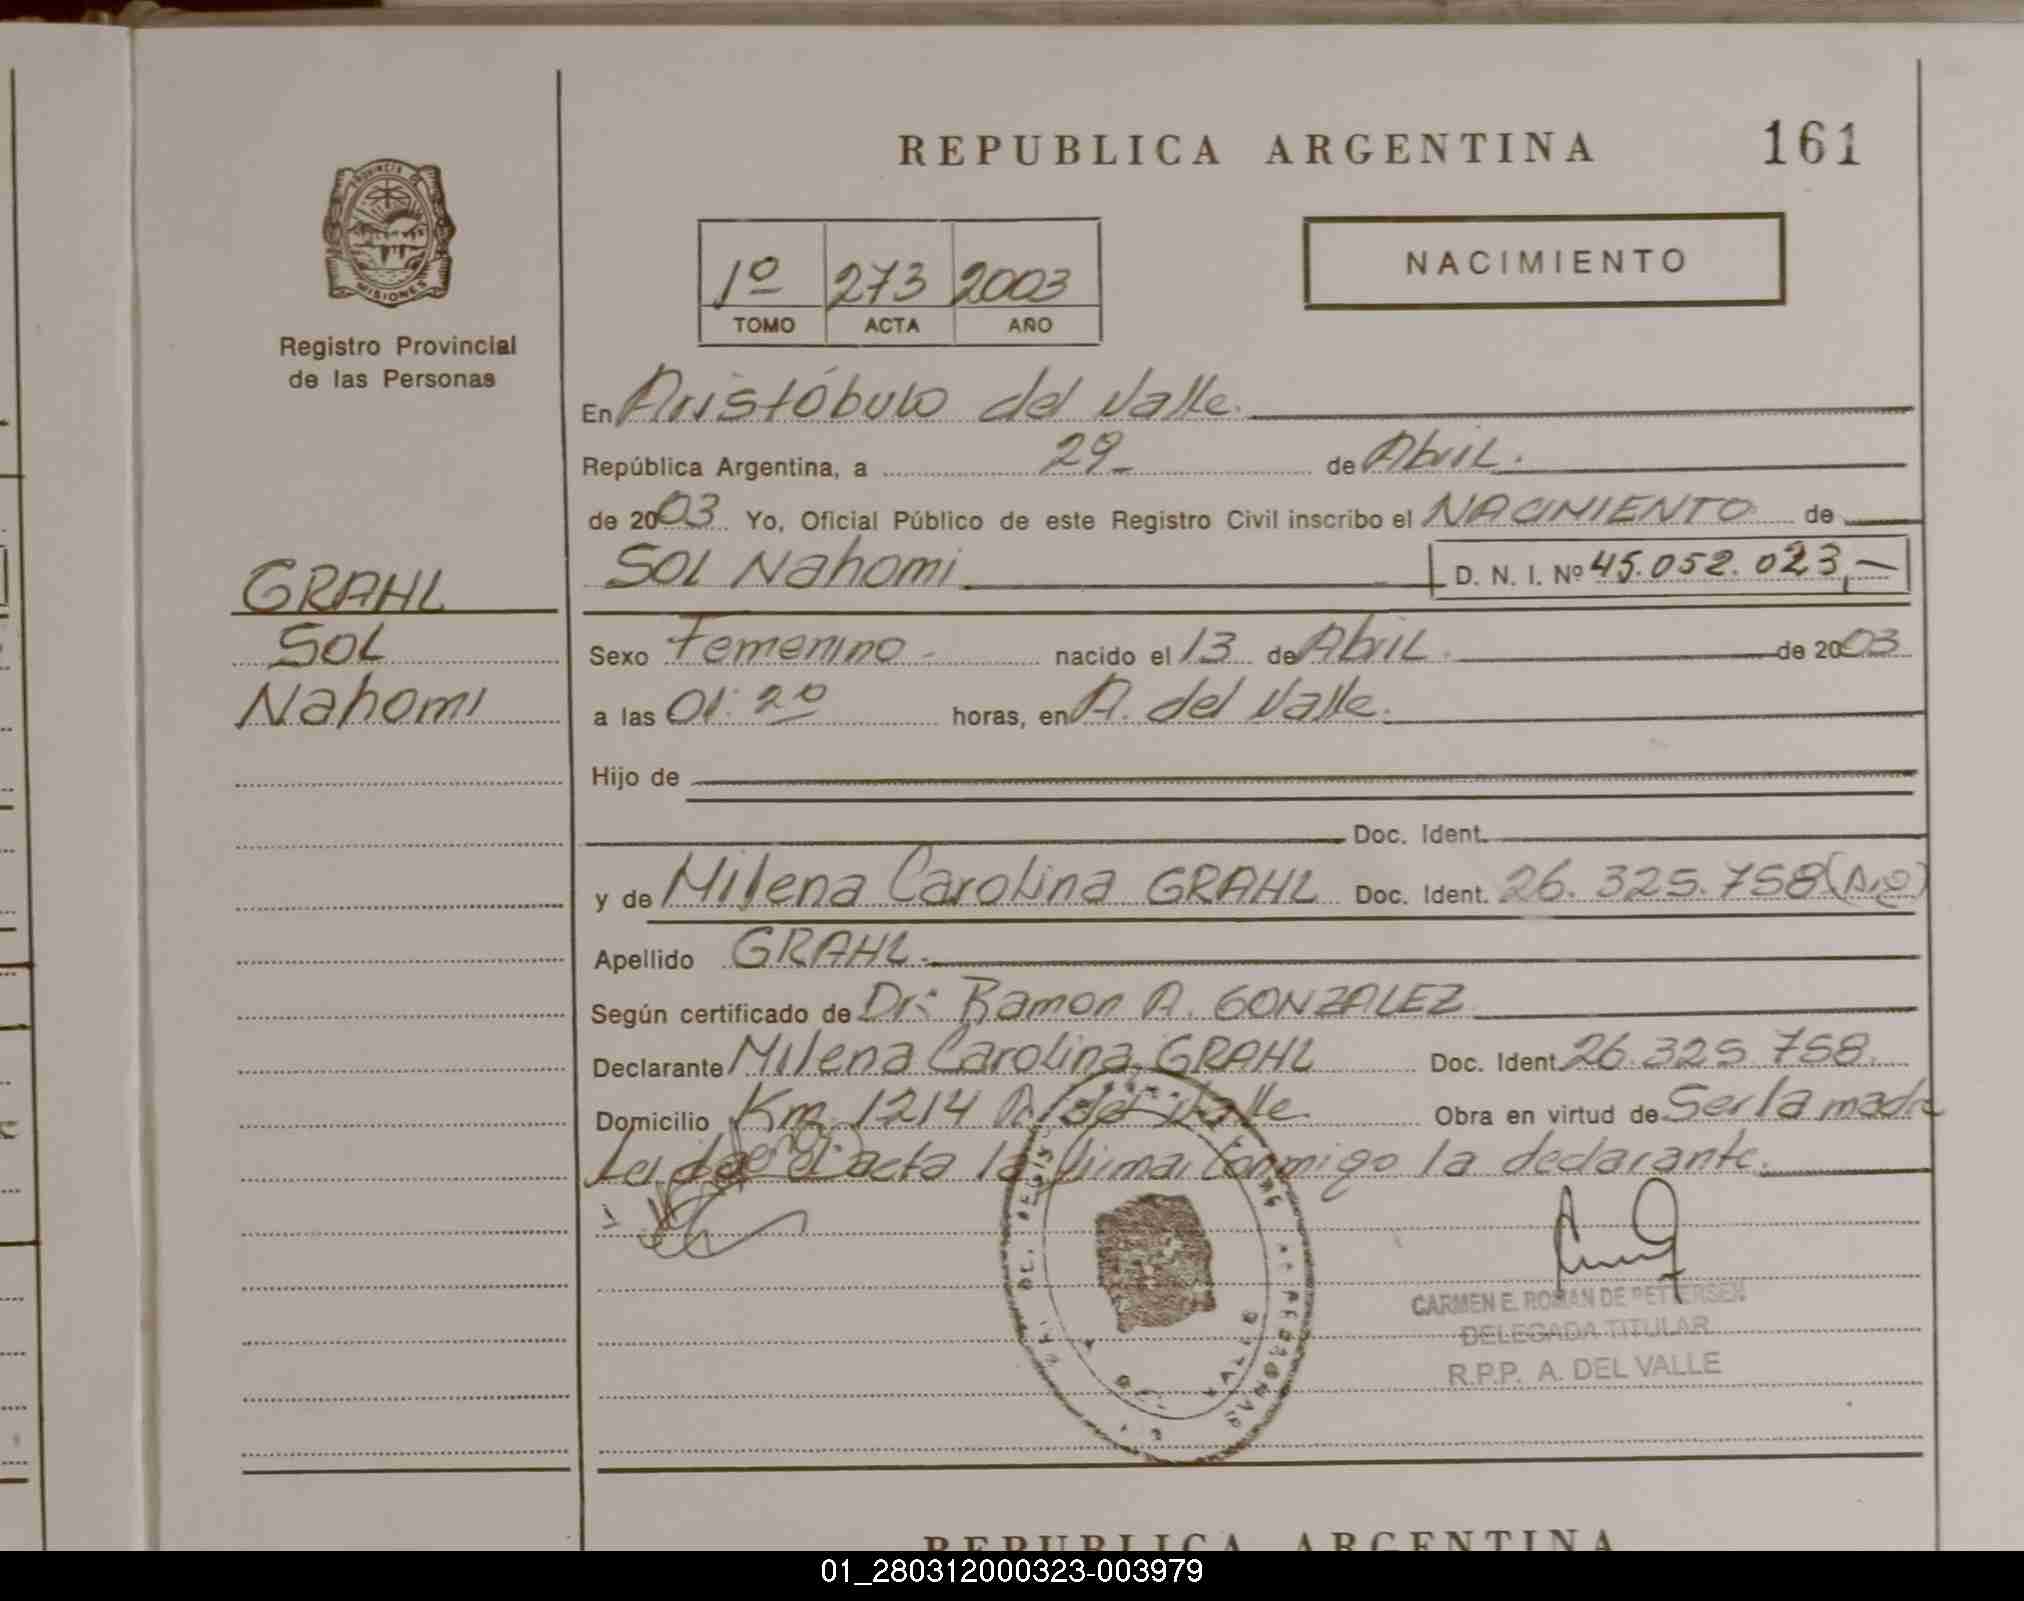 REPUBLICA ARGENTINA
161
PROVINCIA DE
MISIONES
Registro Provincial
de las Personas
NACIMIENTO
1º 273 2003
TOMO ACTA AÑO
En Aristóbulo del Valle.
República Argentina, a 29 de Abril.
de 2003 Yo, Oficial Público de este Registro Civil inscribo el NACIMIENTO de
SOL Nahomi D. N. I. Nº 45.052.023,-
GRAHL
SOL
Nahomi
Sexo Femenino - nacido el 13 de Abril. de 2003
a las 01:20 horas, en A. del Valle.
Hijo de
Doc. Ident.
y de Milena Carolina GRAHL Doc. Ident. 26.325.758
Apellido GRAHL.
Según certificado de Dr: Ramon A. GONZALEZ
Declarante Milena Carolina GRAHL Doc. Ident. 26.325.758.
Domicilio Km. 1214 A. del Valle. Obra en virtud de Ser la madre
el acta la firma conmigo la declarante.
CARMEN E. ROMAN DE PETTERSEN
DELEGADA TITULAR
R.P.P. A. DEL VALLE
REPUBLICA ARGENTINA
01_280312000323-003979